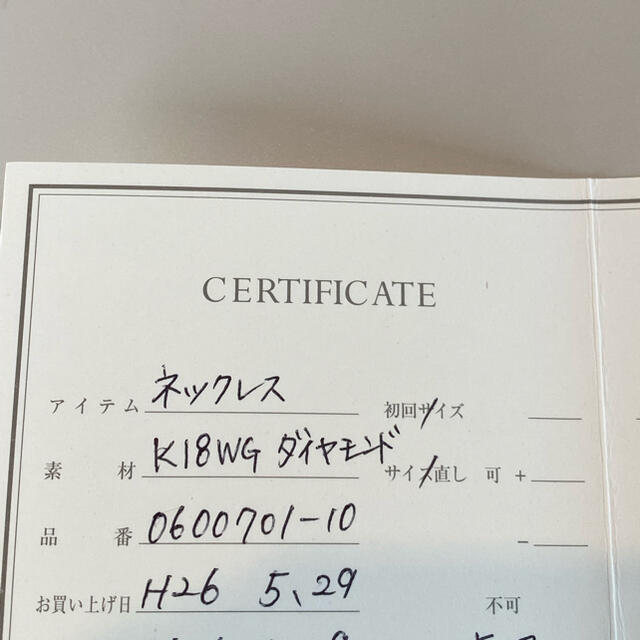 CERTIFICATE
アイテム ネックレス 初回サイズ
素材 K18WG ダイヤモンド サイズ直し 可 +
品番 0600701-10 -
お買い上げ日 H26 5、29 不可